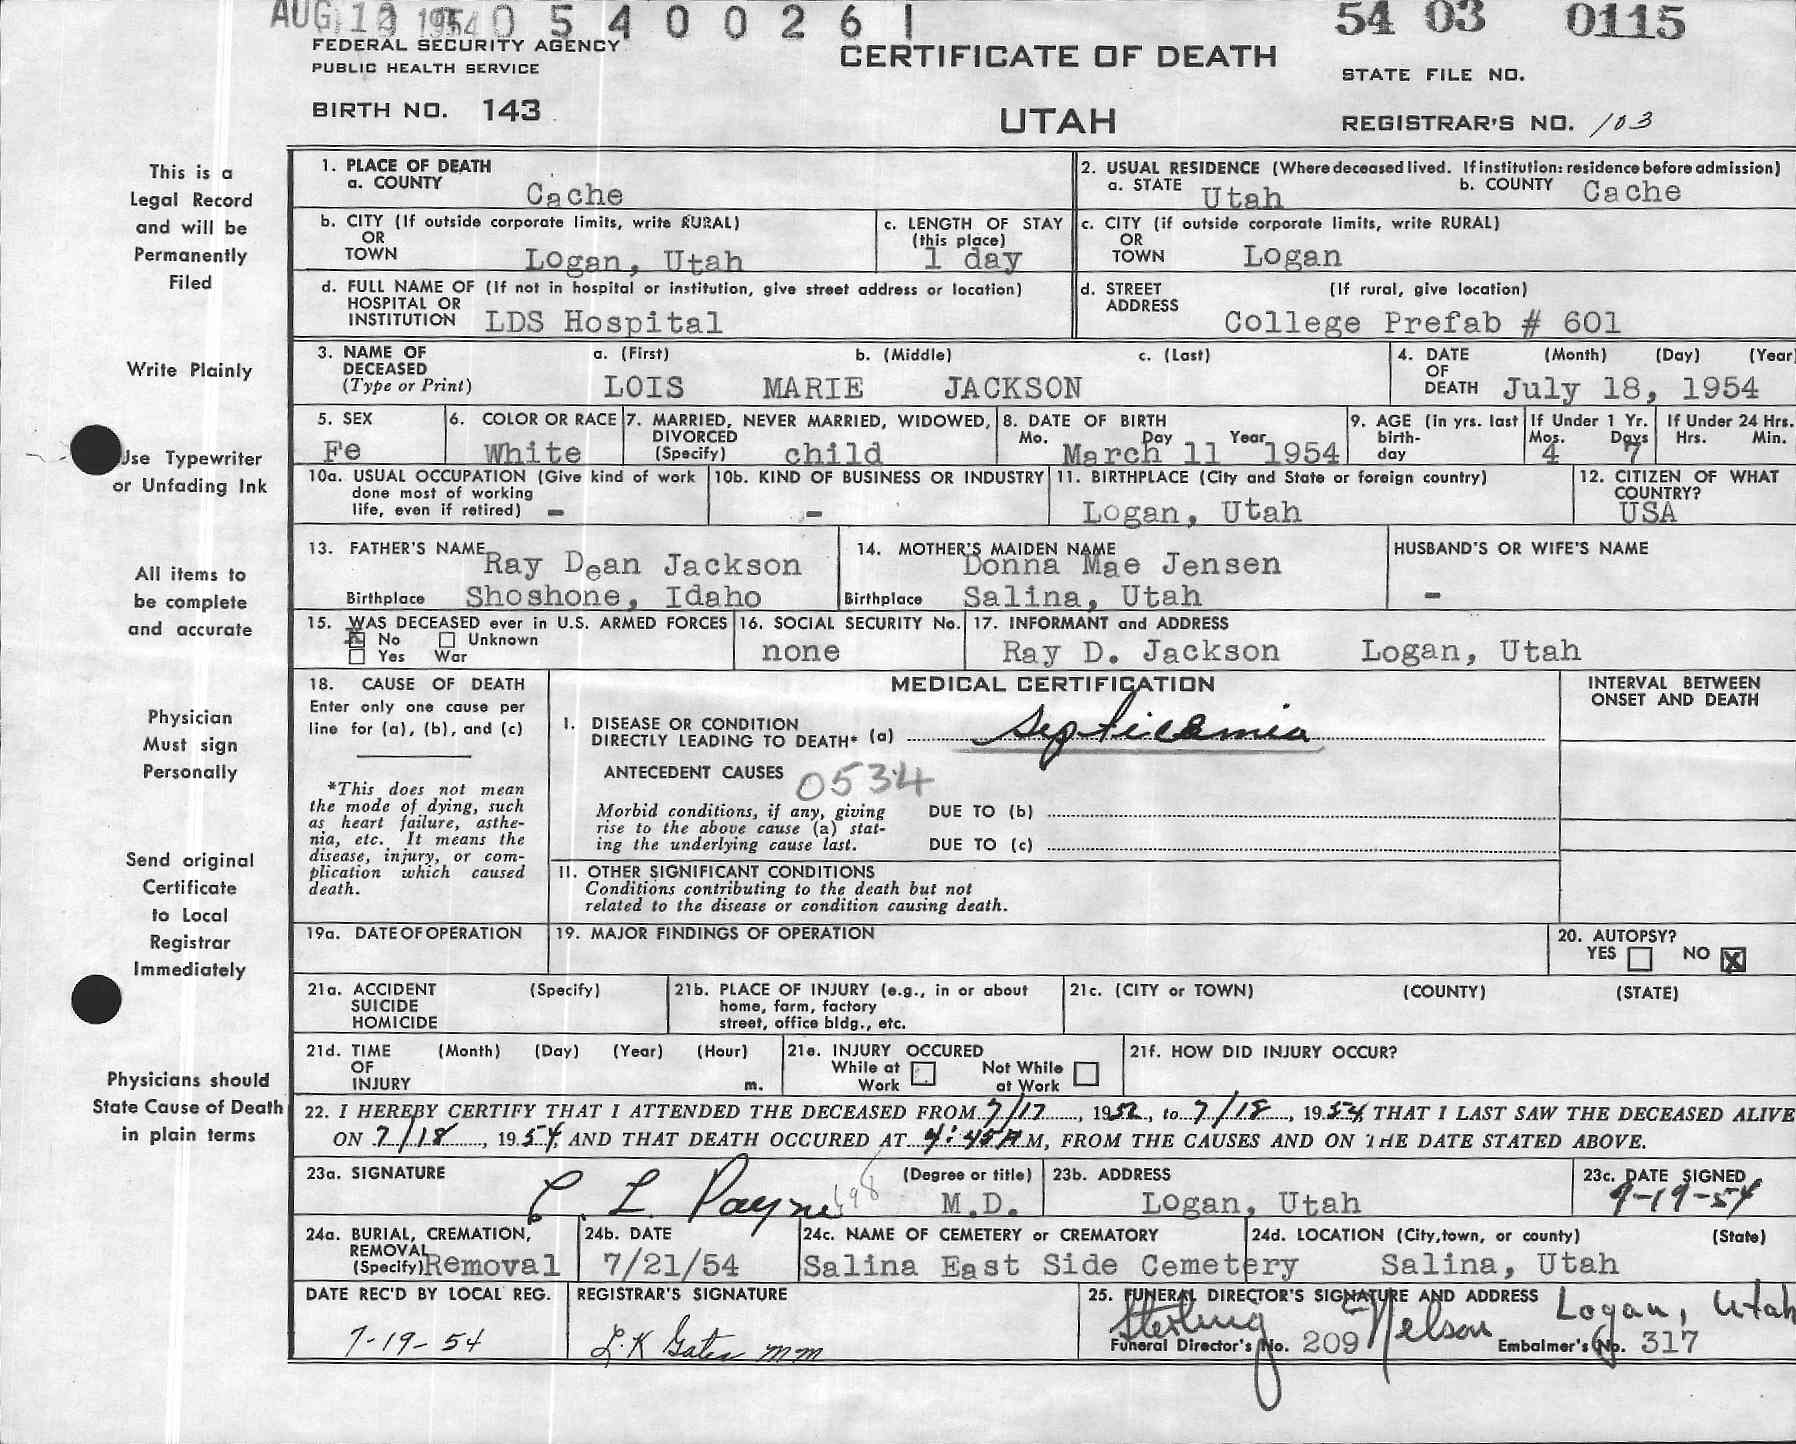 AUG 1954 0 5 4 0 0 2 6 1
54 03 0115
FEDERAL SECURITY AGENCY
PUBLIC HEALTH SERVICE
CERTIFICATE OF DEATH
STATE FILE NO.
BIRTH NO. 143
UTAH
REGISTRAR'S NO. 103
This is a
Legal Record
and will be
Permanently
Filed
Write Plainly
Use Typewriter
or Unfading Ink
All items to
be complete
and accurate
Physician
Must sign
Personally
Send original
Certificate
to Local
Registrar
Immediately
Physicians should
State Cause of Death
in plain terms
1. PLACE OF DEATH
a. COUNTY Cache
2. USUAL RESIDENCE (Where deceased lived. If institution: residence before admission)
a. STATE Utah b. COUNTY Cache
b. CITY (If outside corporate limits, write RURAL)
OR
TOWN Logan, Utah
c. LENGTH OF STAY
(this place)
1 day
c. CITY (if outside corporate limits, write RURAL)
OR
TOWN Logan
d. FULL NAME OF (If not in hospital or institution, give street address or location)
HOSPITAL OR
INSTITUTION LDS Hospital
d. STREET (If rural, give location)
ADDRESS
College Prefab # 601
3. NAME OF a. (First) b. (Middle) c. (Last)
DECEASED
(Type or Print) LOIS MARIE JACKSON
4. DATE (Month) (Day) (Year
OF
DEATH July 18, 1954
5. SEX
Fe
6. COLOR OR RACE
White
7. MARRIED, NEVER MARRIED, WIDOWED,
DIVORCED
(Specify) child
8. DATE OF BIRTH
Mo. Day Year
March 11 1954
9. AGE (in yrs. last
birth-
day
If Under 1 Yr.
Mos. Days
4 7
If Under 24 Hrs.
Hrs. Min.
10a. USUAL OCCUPATION (Give kind of work
done most of working
life, even if retired) -
10b. KIND OF BUSINESS OR INDUSTRY
-
11. BIRTHPLACE (City and State or foreign country)
Logan, Utah
12. CITIZEN OF WHAT
COUNTRY?
USA
13. FATHER'S NAME Ray Dean Jackson
Birthplace Shoshone, Idaho
14. MOTHER'S MAIDEN NAME
Donna Mae Jensen
Birthplace Salina, Utah
HUSBAND'S OR WIFE'S NAME
-
15. WAS DECEASED ever in U.S. ARMED FORCES
No Unknown
Yes War
16. SOCIAL SECURITY No.
none
17. INFORMANT and ADDRESS
Ray D. Jackson Logan, Utah
18. CAUSE OF DEATH
Enter only one cause per
line for (a), (b), and (c)
*This does not mean
the mode of dying, such
as heart failure, asthe-
nia, etc. It means the
disease, injury, or com-
plication which caused
death.
MEDICAL CERTIFICATION
INTERVAL BETWEEN
ONSET AND DEATH
I. DISEASE OR CONDITION
DIRECTLY LEADING TO DEATH* (a) Septicemia
ANTECEDENT CAUSES 0534
Morbid conditions, if any, giving
rise to the above cause (a) stat-
ing the underlying cause last.
DUE TO (b)
DUE TO (c)
II. OTHER SIGNIFICANT CONDITIONS
Conditions contributing to the death but not
related to the disease or condition causing death.
19a. DATE OF OPERATION
19. MAJOR FINDINGS OF OPERATION
20. AUTOPSY?
YES NO X
21a. ACCIDENT (Specify)
SUICIDE
HOMICIDE
21b. PLACE OF INJURY (e.g., in or about
home, farm, factory
street, office bldg., etc.
21c. (CITY or TOWN) (COUNTY) (STATE)
21d. TIME (Month) (Day) (Year) (Hour)
OF
INJURY m.
21e. INJURY OCCURED
While at Not While
Work at Work
21f. HOW DID INJURY OCCUR?
22. I HEREBY CERTIFY THAT I ATTENDED THE DECEASED FROM 7/17, 1952, to 7/18, 1954, THAT I LAST SAW THE DECEASED ALIVE
ON 7/18, 1954, AND THAT DEATH OCCURED AT 4:45 AM, FROM THE CAUSES AND ON THE DATE STATED ABOVE.
23a. SIGNATURE (Degree or title)
C. L. Payne 698 M.D.
23b. ADDRESS
Logan, Utah
23c. DATE SIGNED
9-19-54
24a. BURIAL, CREMATION,
REMOVAL
(Specify) Removal
24b. DATE
7/21/54
24c. NAME OF CEMETERY or CREMATORY
Salina East Side Cemetery
24d. LOCATION (City, town, or county) (State)
Salina, Utah
DATE REC'D BY LOCAL REG.
7-19-54
REGISTRAR'S SIGNATURE
L.K Gates mm
25. FUNERAL DIRECTOR'S SIGNATURE AND ADDRESS Logan, Utah
Sterling Nelson
Funeral Director's No. 209 Embalmer's No. 317